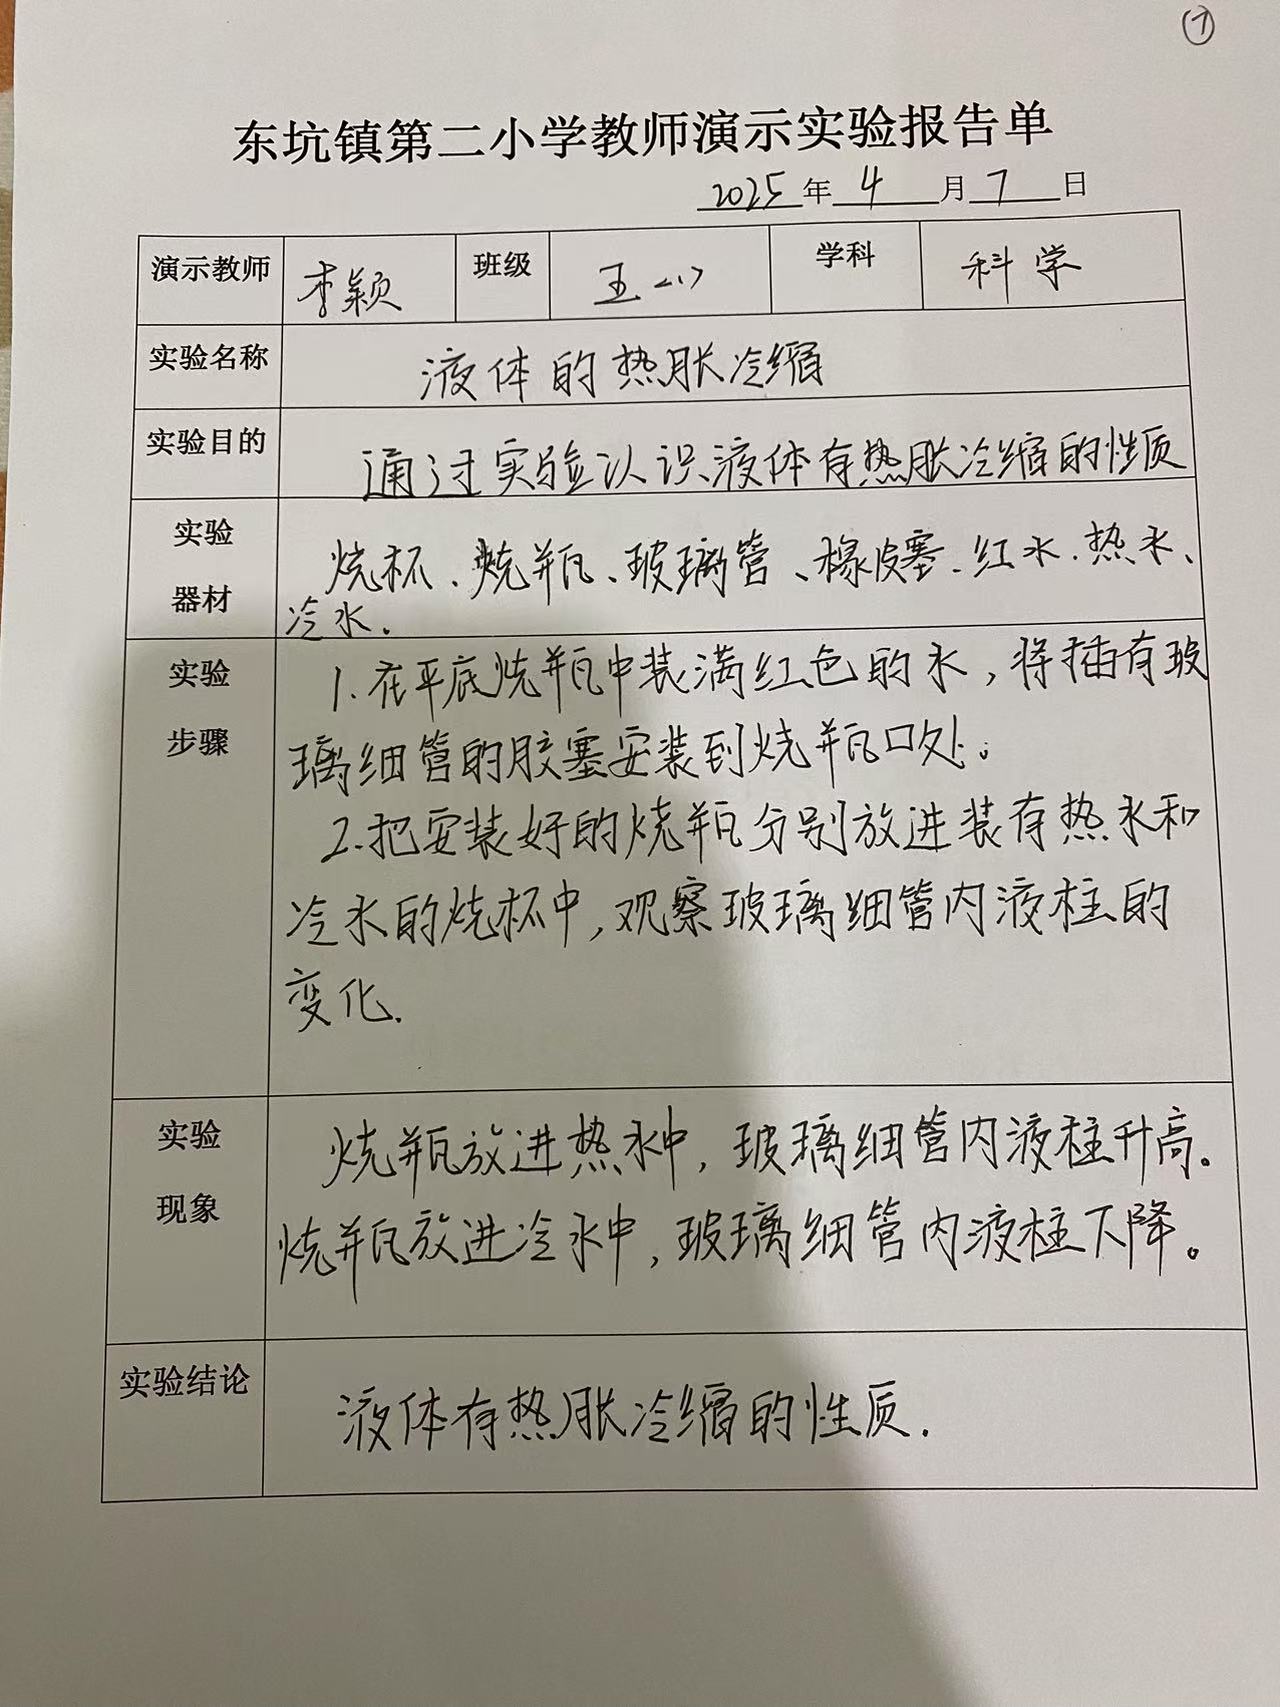 ⑦
东坑镇第二小学教师演示实验报告单
2025年 4 月 7 日
演示教师 李颖 班级 五(1) 学科 科学
实验名称 液体的热胀冷缩
实验目的 通过实验认识液体有热胀冷缩的性质
实验器材 烧杯、烧瓶、玻璃管、橡皮塞、红水、热水、
冷水.
实验步骤 1.在平底烧瓶中装满红色的水，将插有玻
璃细管的胶塞安装到烧瓶口处。
2.把安装好的烧瓶分别放进装有热水和
冷水的烧杯中,观察玻璃细管内液柱的
变化.
实验现象 烧瓶放进热水中，玻璃细管内液柱升高.
烧瓶放进冷水中，玻璃细管内液柱下降。
实验结论 液体有热胀冷缩的性质.